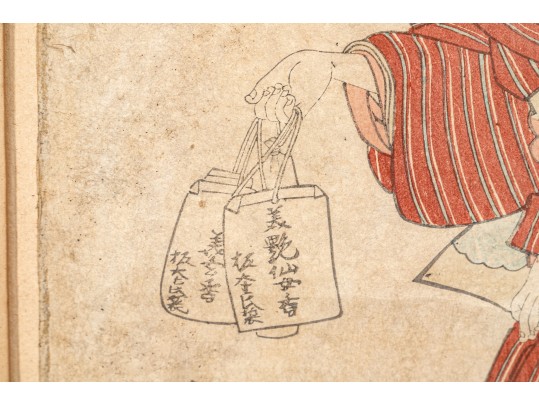 美艶仙女香
坂本氏製
美香
坂本氏製